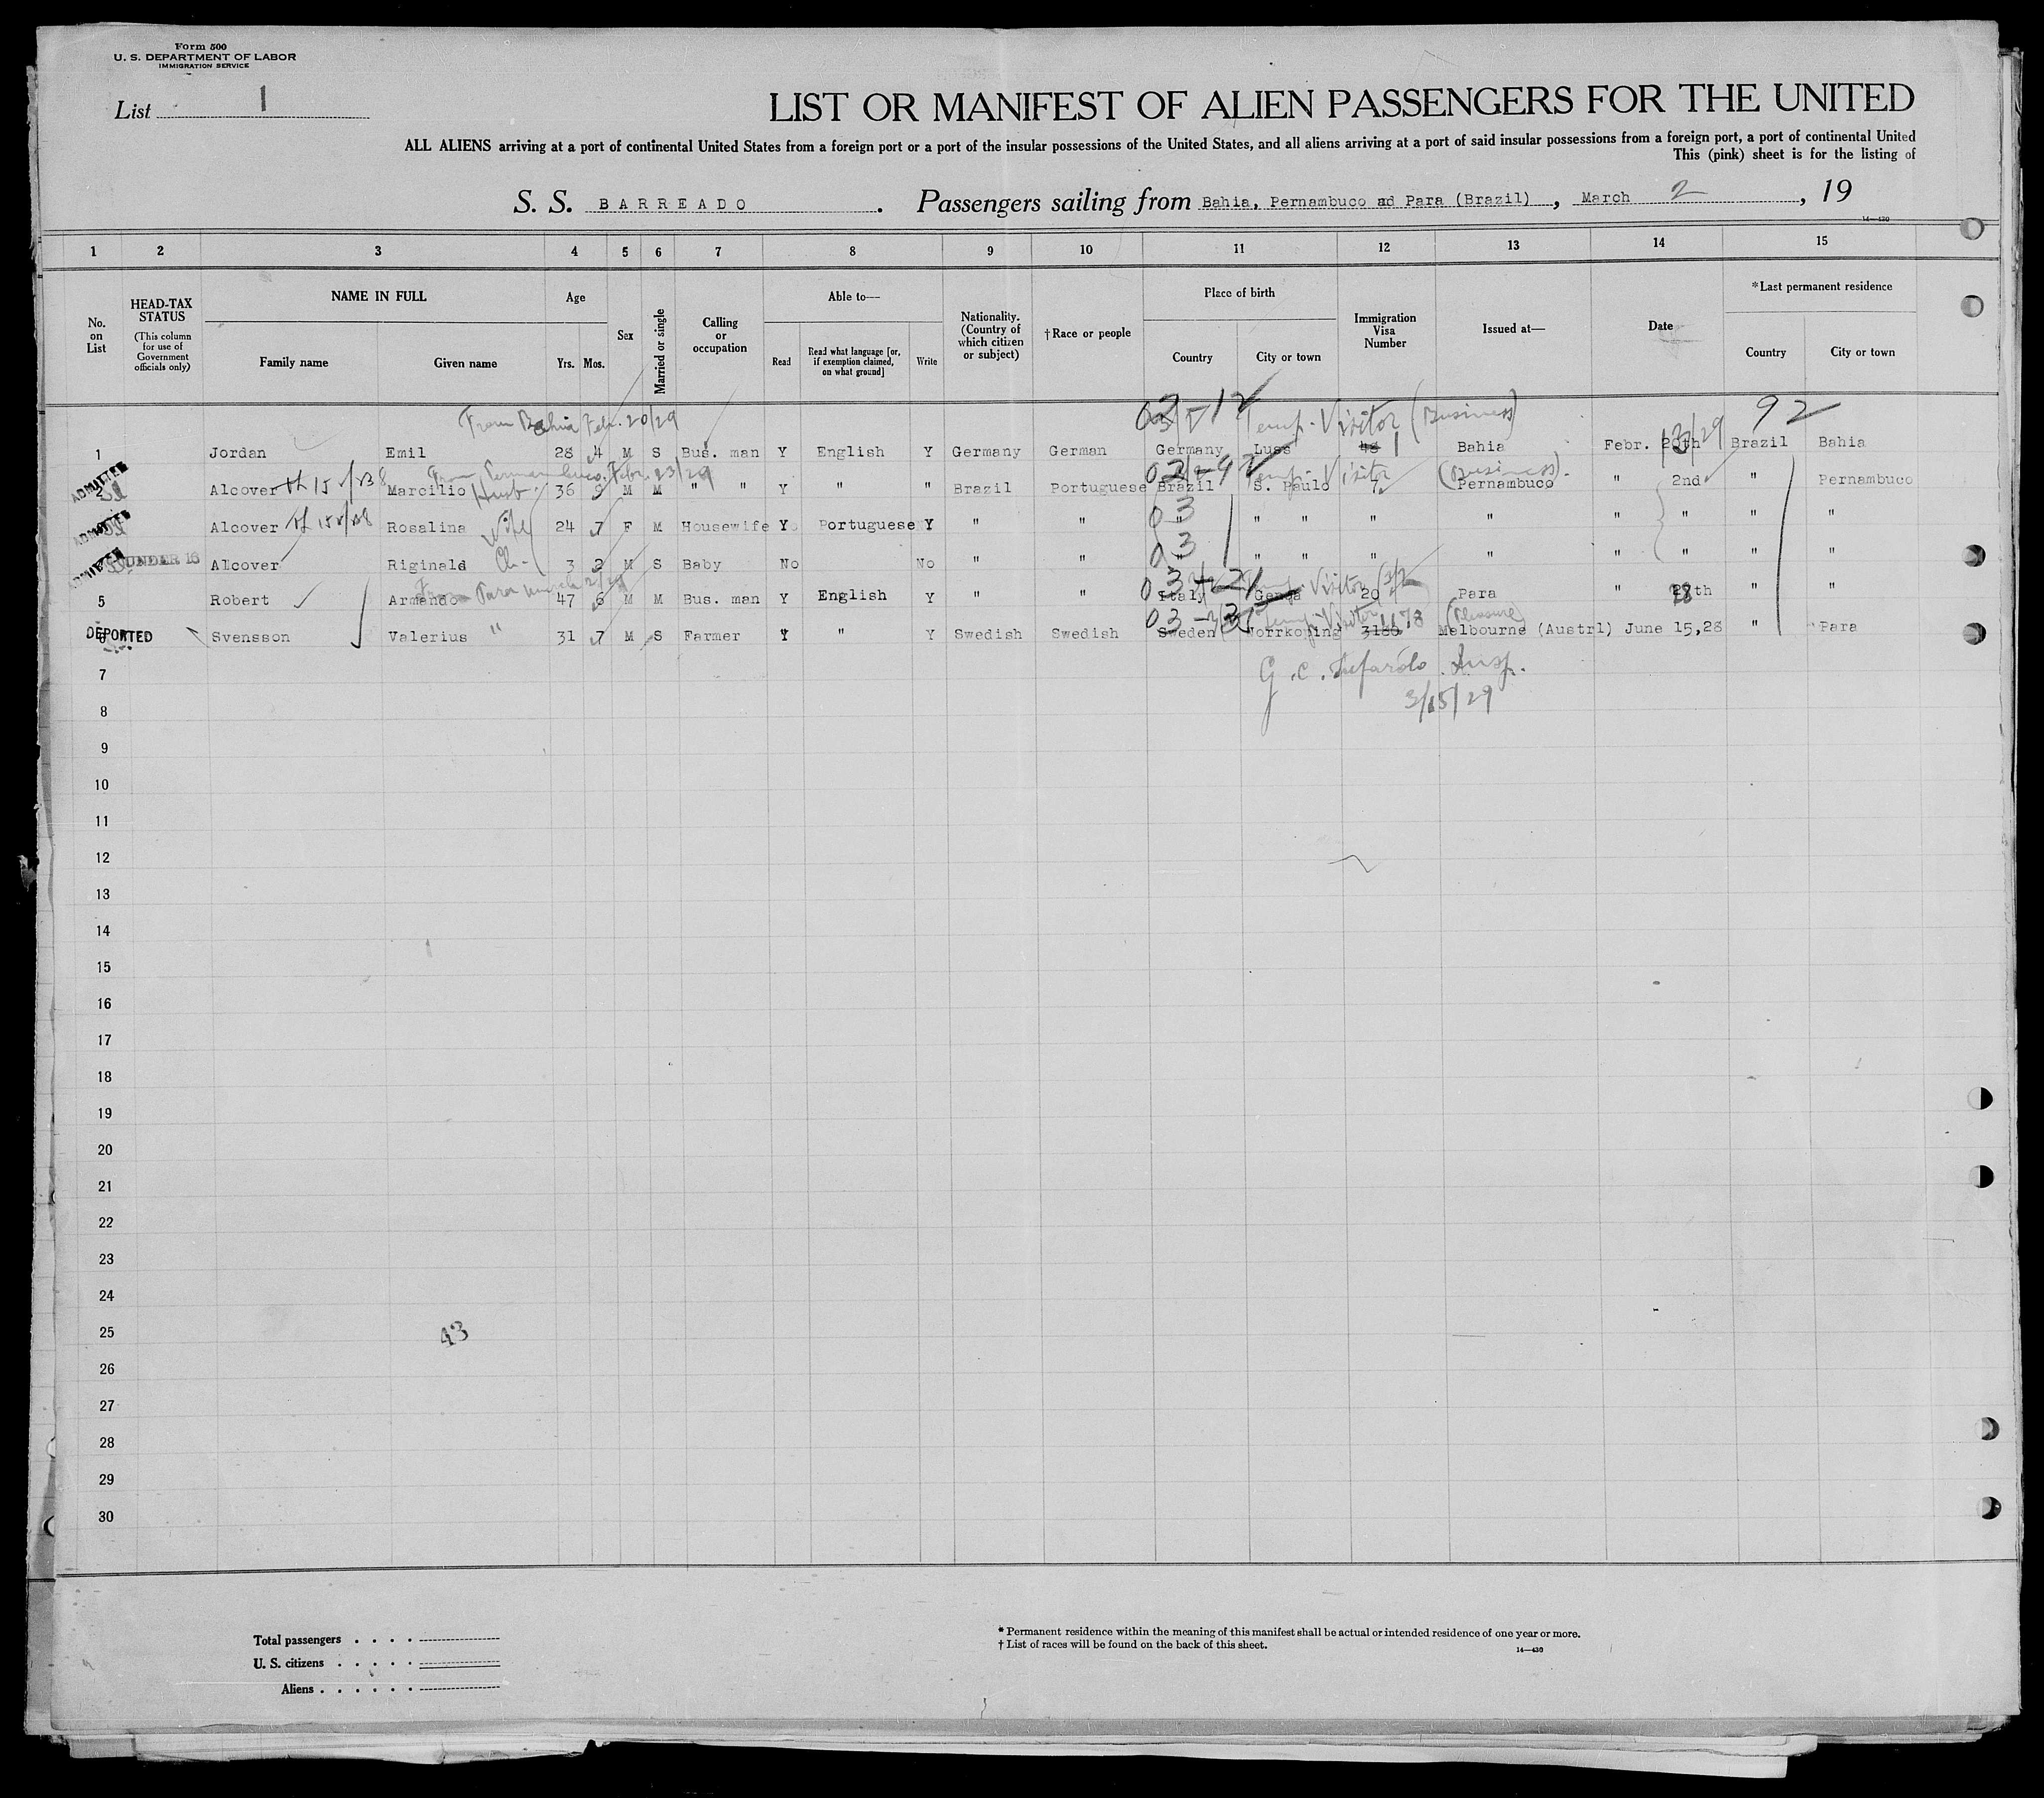 Form 500
U. S. DEPARTMENT OF LABOR
IMMIGRATION SERVICE
List 1
LIST OR MANIFEST OF ALIEN PASSENGERS FOR THE UNITED
ALL ALIENS arriving at a port of continental United States from a foreign port or a port of the insular possessions of the United States, and all aliens arriving at a port of said insular possessions from a foreign port, a port of continental United
This (pink) sheet is for the listing of
S. S. BARREADO. Passengers sailing from Bahia, Pernambuco ad Para (Brazil), March 2, 19
14—430
1 2 3 4 5 6 7 8 9 10 11 12 13 14 15
No. on List
HEAD-TAX STATUS (This column for use of Government officials only)
NAME IN FULL
Family name Given name
Age
Yrs. Mos.
Sex
Married or single
Calling or occupation
Able to—
Read Read what language [or, if exemption claimed, on what ground] Write
Nationality. (Country of which citizen or subject)
†Race or people
Place of birth
Country City or town
Immigration Visa Number
Issued at—
Date
*Last permanent residence
Country City or town
From Bahia Febr. 20/29 Temp. Visitor (Business) 92
1 Jordan Emil 28 4 M S Bus. man Y English Y Germany German Germany Luss 1 Bahia Febr. 13/29 Brazil Bahia
From Pernambuco, Febr. 23/29 Temp. Visitor (Business)
ADMITTED 2 Alcover Marcilio Husb 36 9 M M " " Y " " Brazil Portuguese Brazil S. Paulo 7 Pernambuco " 2nd " Pernambuco
03
ADMITTED Alcover Rosalina Wife 24 7 F M Housewife Y Portuguese Y " " " " " " " " " " "
03
ADMITTED UNDER 16 Alcover Riginald Ch- 3 2 M S Baby No No " " " " " " " " " " "
From Para March 2/29 Temp. Visitor
5 Robert Armando 47 6 M M Bus. man Y English Y " " Italy Genoa 20 Para " 28th " "
Temp. Visitor (Pleasure)
DEPORTED 6 Svensson Valerius " 31 7 M S Farmer Y " Y Swedish Swedish Sweden Norrkoping 3180 Melbourne (Austrl) June 15,28 " Para
7 G. C. Insp.
8 3/15/29
9
10
11
12
13
14
15
16
17
18
19
20
21
22
23
24
25 43
26
27
28
29
30
Total passengers . . . .
U. S. citizens . . . . .
Aliens . . . . . .
* Permanent residence within the meaning of this manifest shall be actual or intended residence of one year or more.
† List of races will be found on the back of this sheet.
14—430